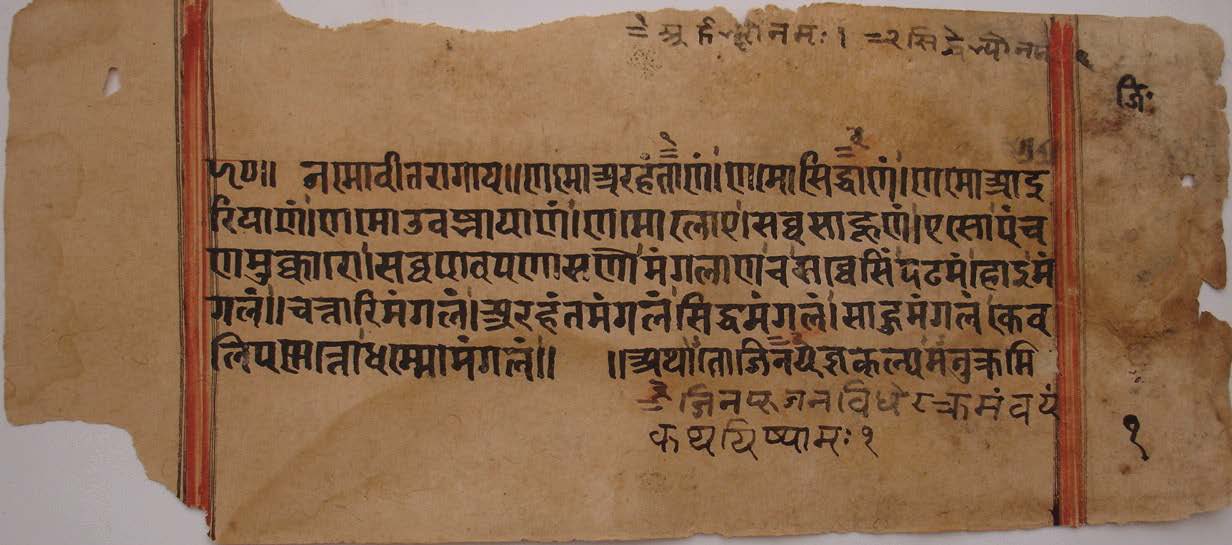 = अर्हद्भ्यो नमः । = २ सिद्धेभ्यो नमः
जि॰
१ २
॥ नमो वीतरागाय ॥ णमो अरहंताणं । णमो सिद्धाणं । णमो आइ
रियाणं । णमो उवज्झायाणं । णमो लोए । सव्वसाहूणं । एसो पंच
णमुक्कारो । सव्वपावपणासणो । मंगलाणं च सव्वेसिं पढमं । होइ मं
गलं ॥ चत्तारि मंगलं । अरहंत मंगलं । सिद्ध मंगलं । साहू मंगलं । केव
लिपण्णत्तो धम्मो मंगलं ॥ ॥ अथातो जिनयज्ञकल्पमनुक्रमि
= जिनपूजनविधेः क्रमं वयं
कथयिष्यामः १
१